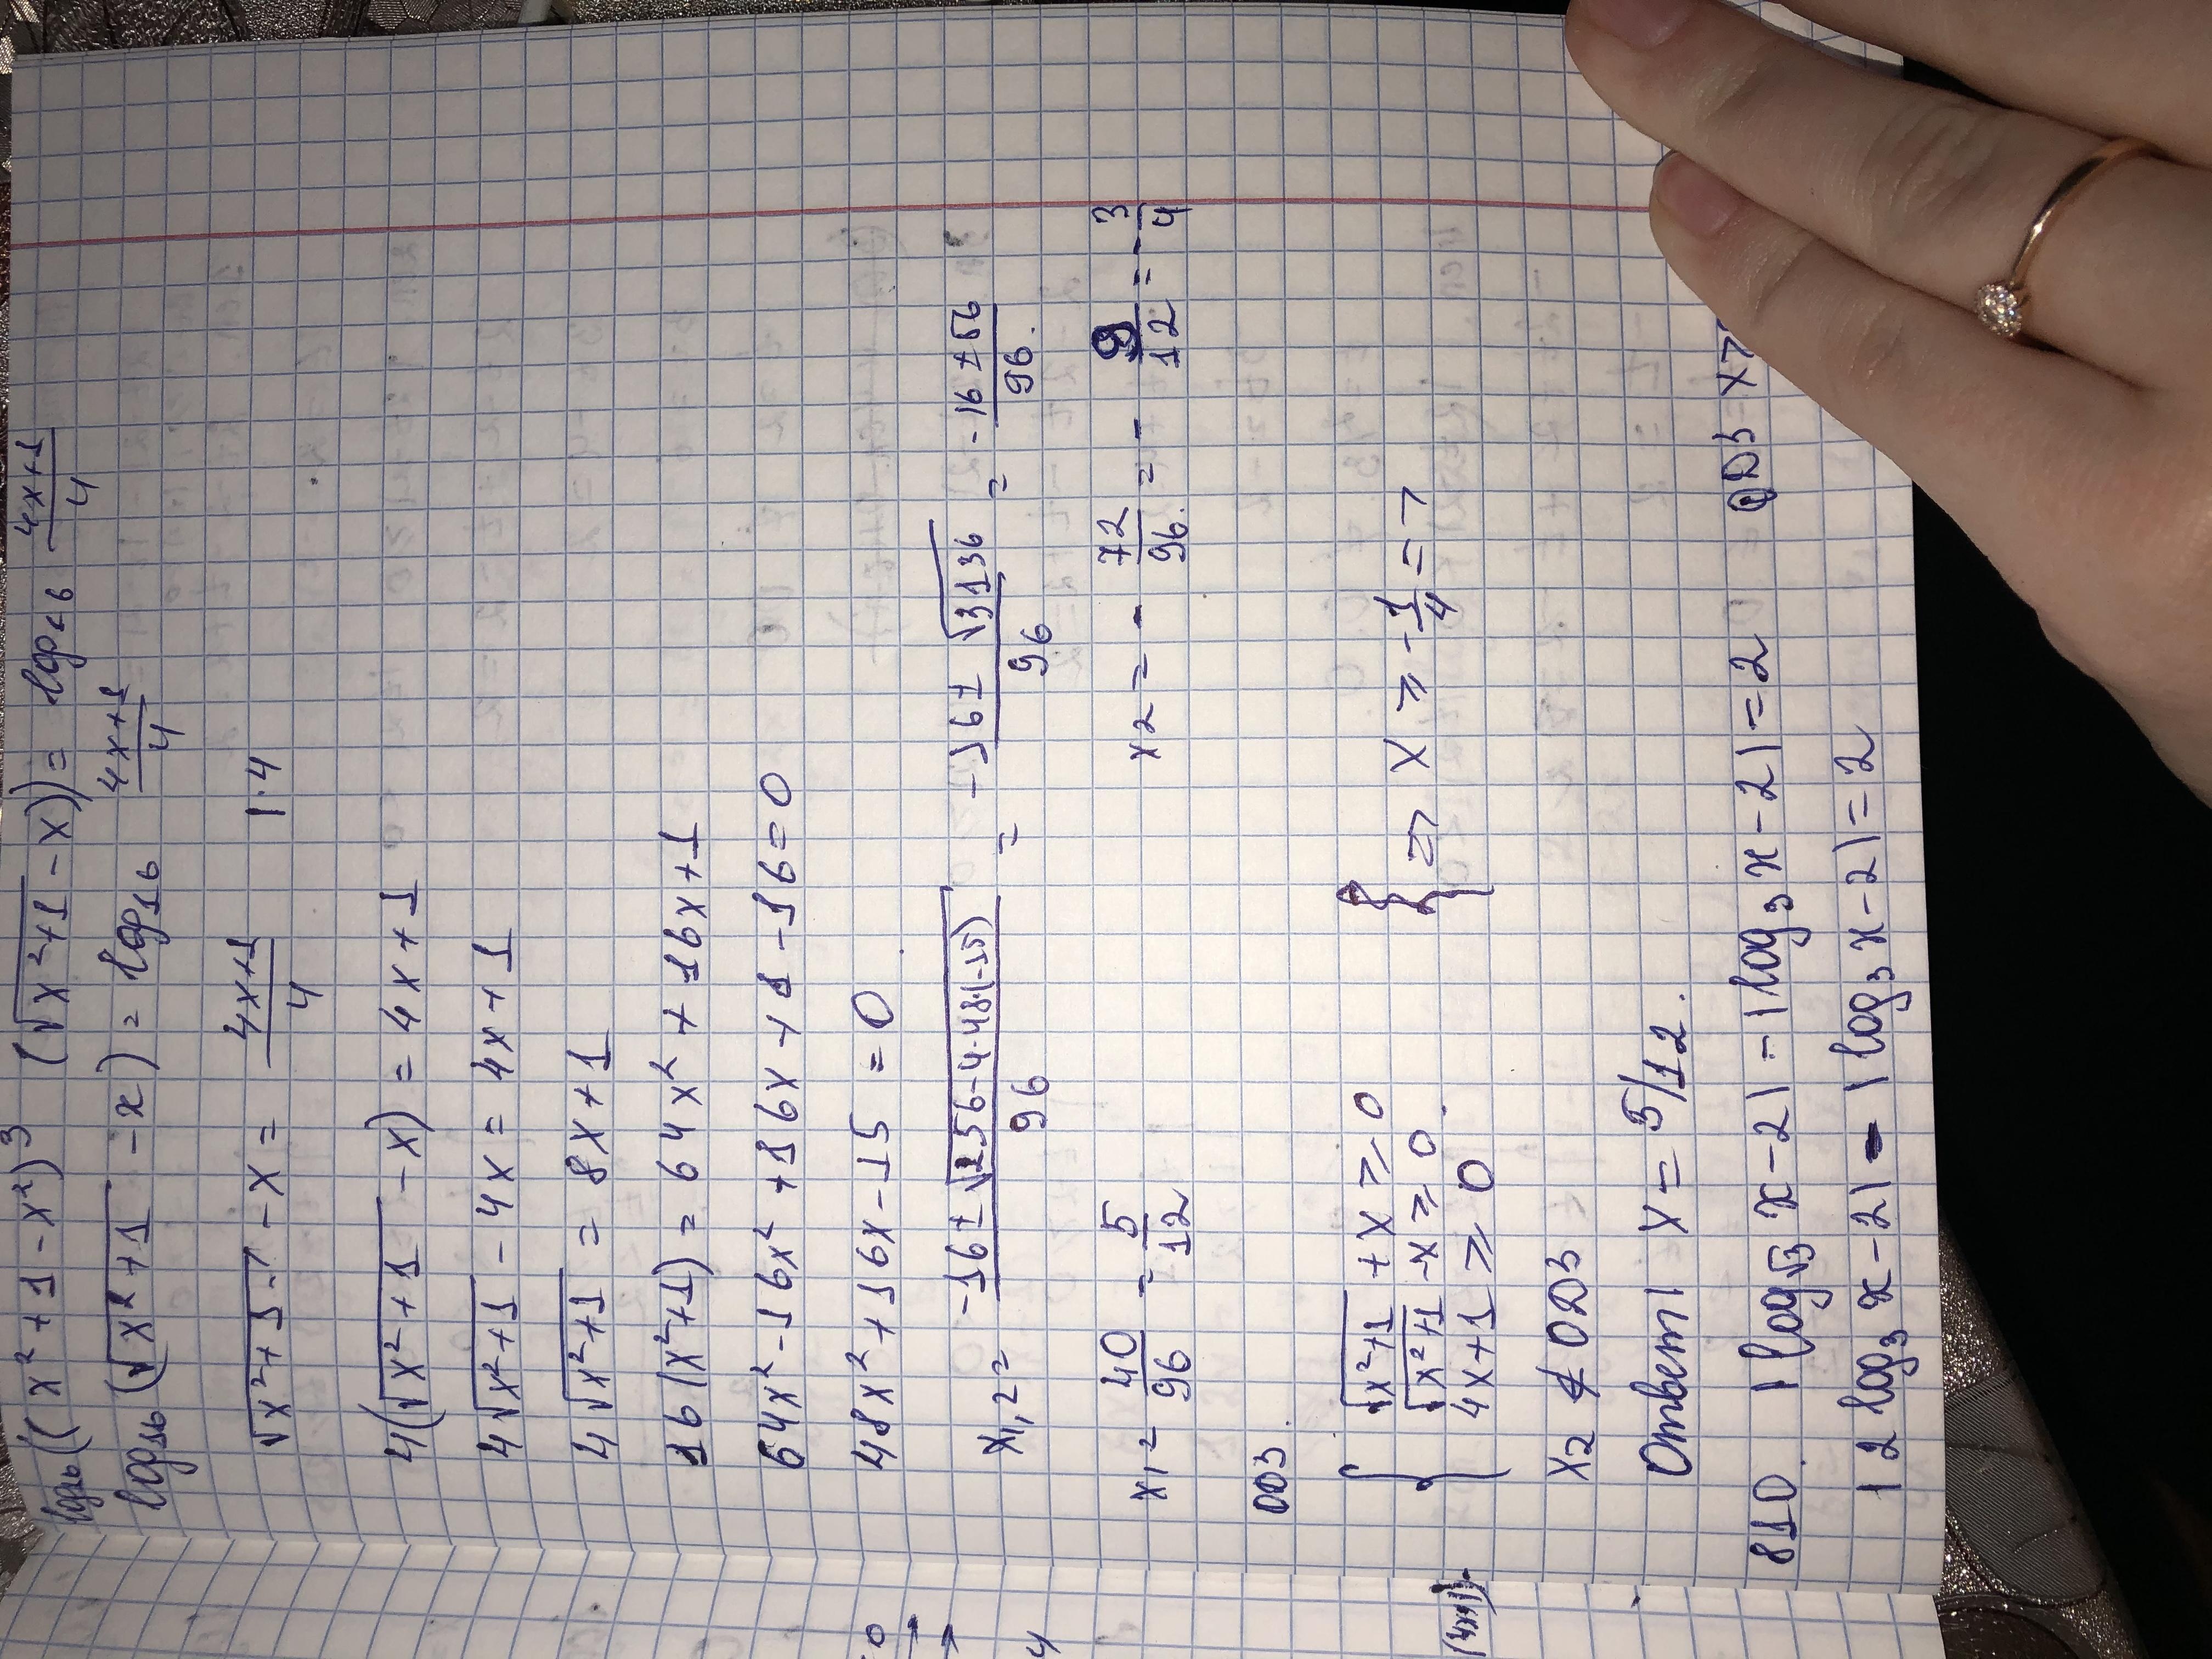 log₁₆((x²+1-x²)³ (√(x²+1)-x)) = log₁₆ (4x+1)/4
log₁₆(√(x²+1) -x) = log₁₆ (4x+1)/4
√(x²+1) -x = (4x+1)/4 |·4
4(√(x²+1) -x) = 4x+1
4√(x²+1) -4x = 4x+1
4√(x²+1) = 8x+1
16(x²+1) = 64x²+16x+1
64x²-16x²+16x+1-16=0
48x²+16x-15=0
x₁,₂= (-16±√(256-4·48·(-15)))/96 = (-16±√3136)/96 = (-16±56)/96.
x₁= 40/96 = 5/12 x₂= - 72/96. = - 9/12 = - 3/4
ОДЗ.
{ √(x²+1) +x ≥ 0
√(x²+1) -x ≥ 0. } => x ≥ -1/4 =>
4x+1 ≥ 0
x₂ ∉ ОДЗ
Ответ| x = 5/12.
810. |log√3 x-2| - |log₃ x-2| = 2 ОДЗ x>
|2 log₃ x-2| - |log₃ x-2| = 2
0
4
(4x+1)